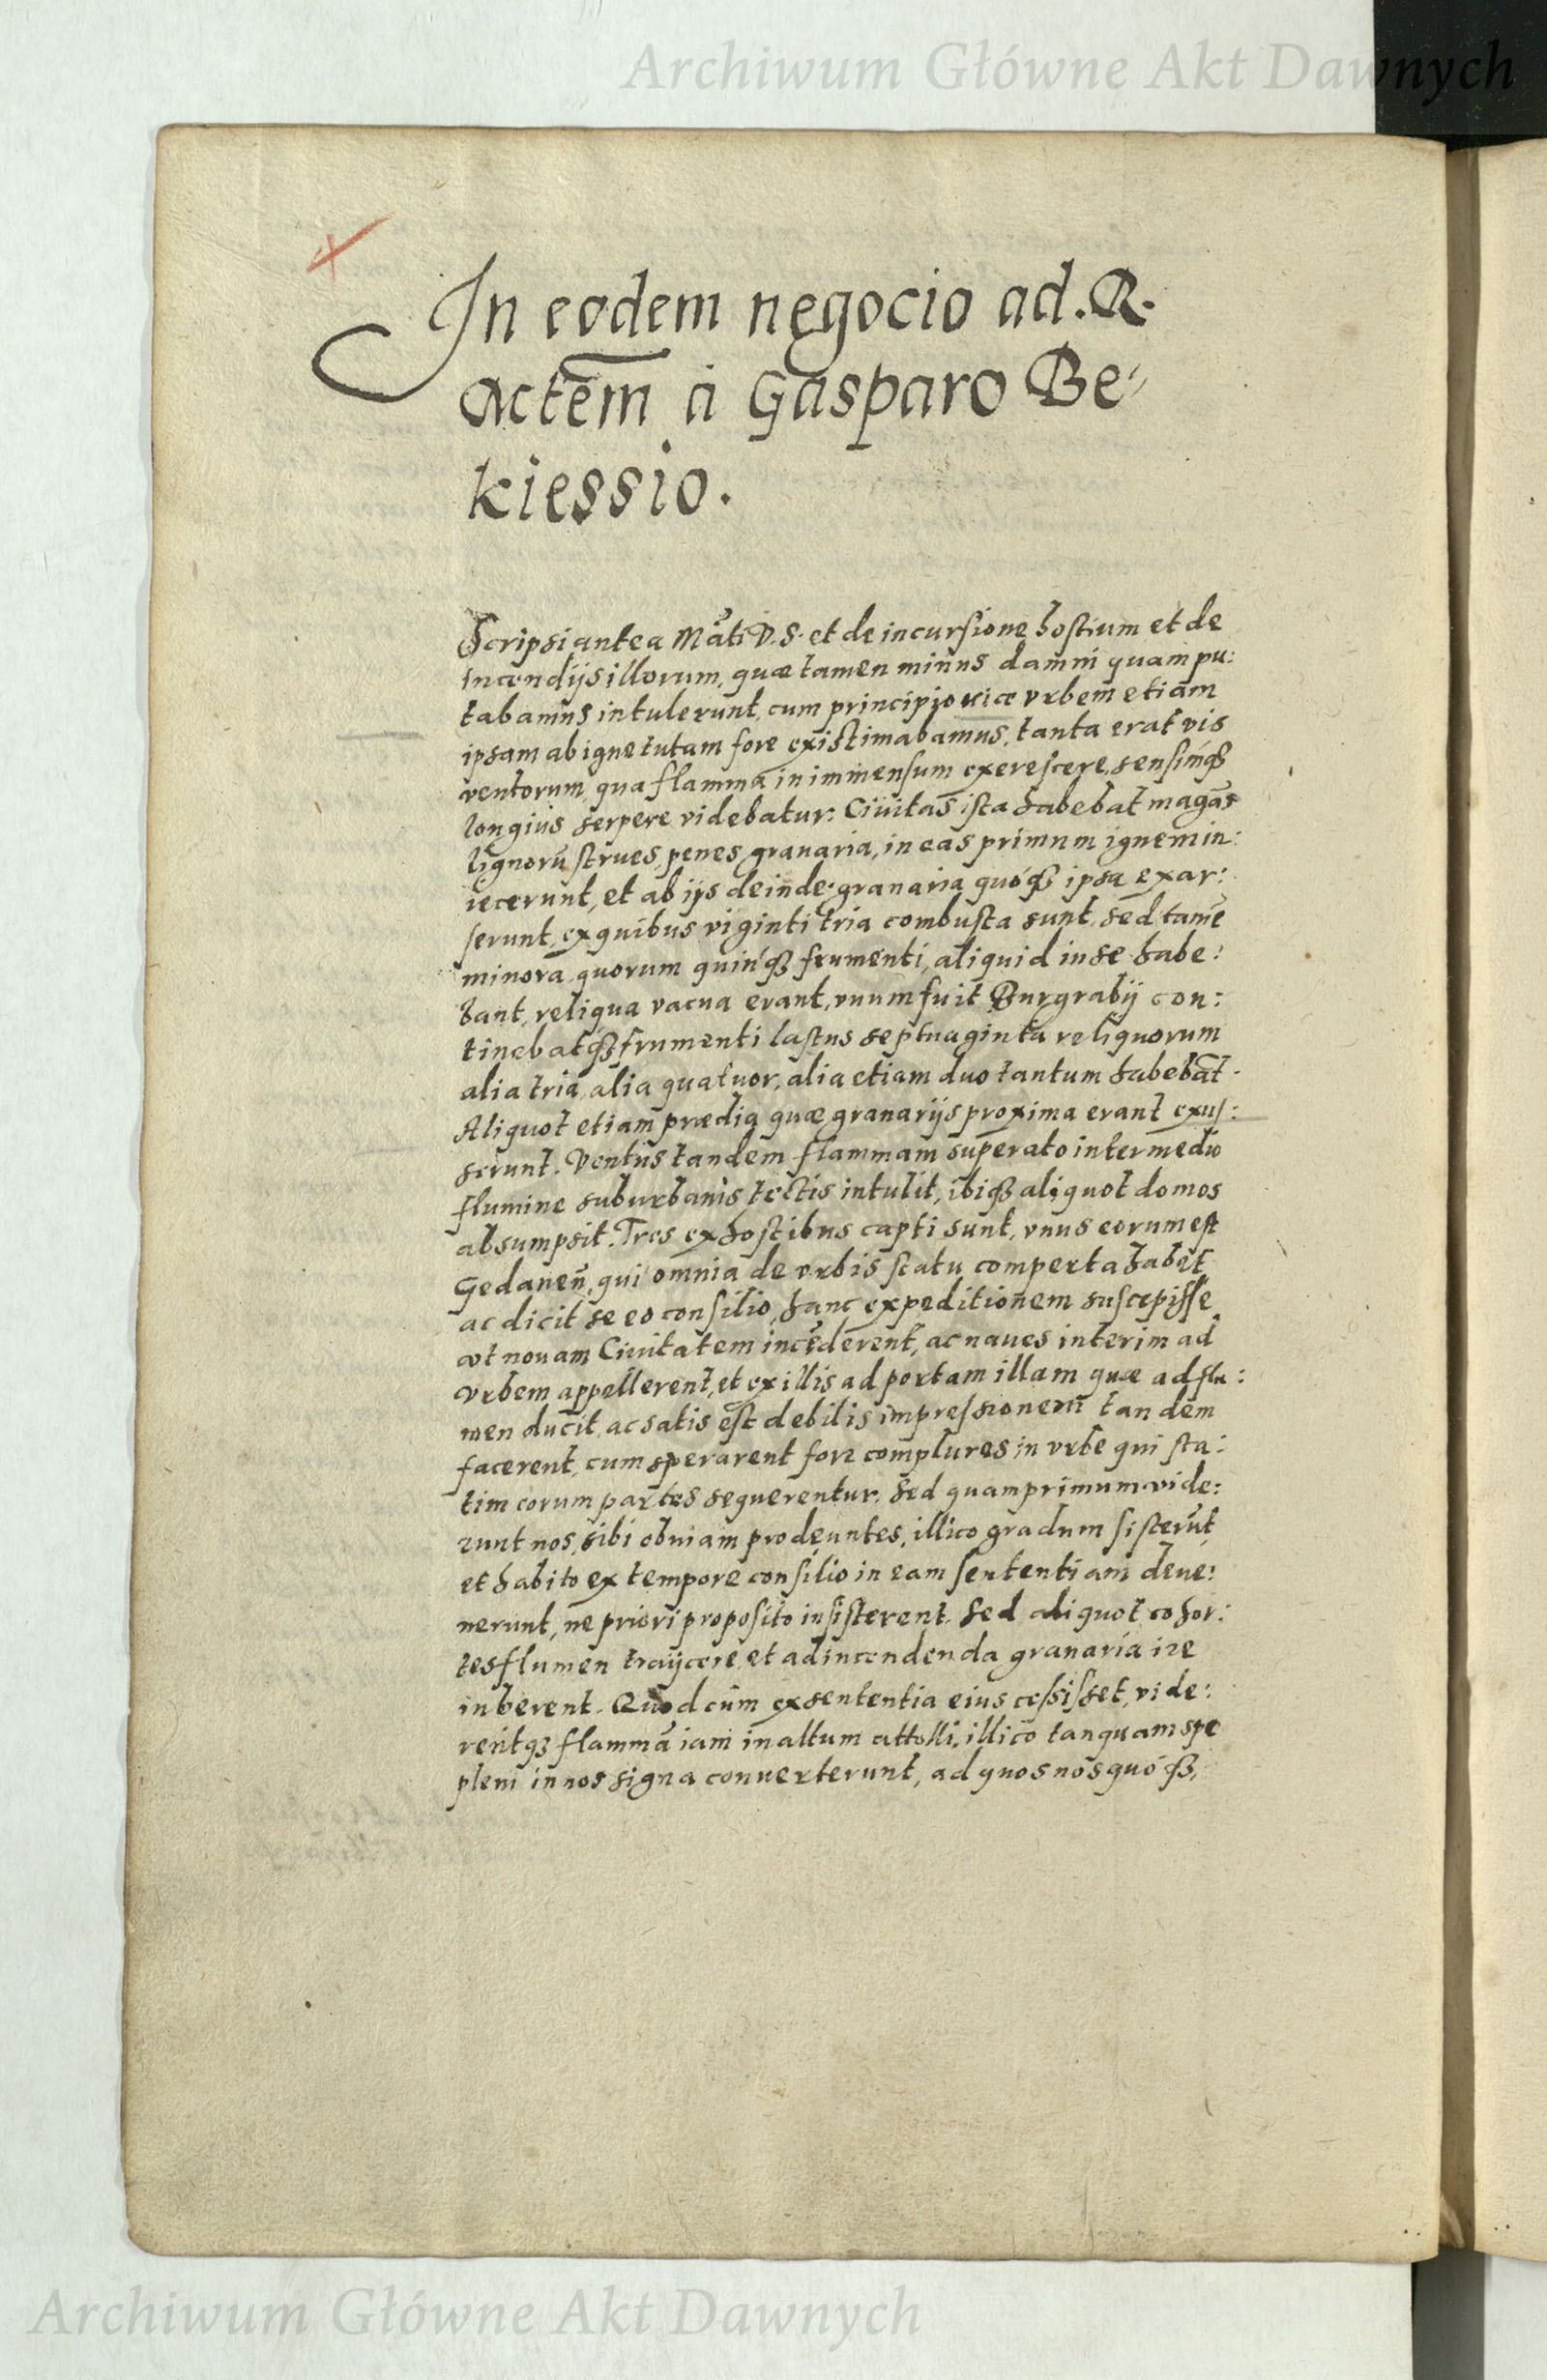 Archiwum Główne Akt Dawnych
In eodem negocio ad. R.
Mctem̄ à Gasparo Be-
kiessio.
Scripsi antea Mati V. S. et de incursione hostium et de
incendijs illorum, quæ tamen minus damni quam pu:
tabamus intulerunt, cum principio vice vrbem etiam
ipsam ab igne tutam fore existimabamus, tanta erat vis
ventorum, qua flamma in immensum exerescere, sensimq3
longius serpere videbatur. Ciuitas ista habebat magās
lignorū strues, penes granaria, in eas primum ignem in:
iecerunt, et ab ijs deinde granaria quoq3 ipsa exar:
serunt, ex quibus viginti tria combusta sunt, sed tamē
minora quorum quinq3 frumenti, aliquid in se habe:
bant, reliqua vacua erant, vnum fuit Burgrabij con:
tinebatq3 frumenti lastus septuaginta reliquorum
alia tria, alia quatuor, alia etiam duo tantum habebāt.
Aliquot etiam prædia quæ granarijs proxima erant exus:
serunt. Ventus tandem flammam superato intermedio
flumine suburbanis tectis intulit, ibiq3 aliquot domos
absumpsit. Tres ex hostibus capti sunt, vnus eorum est
Gedanen̄, qui omnia de vrbis statu comperta habet
ac dicit se eo consilio, hanc expeditionem suscepisse
vt nouam Ciuitatem incēderent, ac naues interim ad
vrbem appellerent, et ex illis ad portam illam quæ ad flu:
men ducit, ac satis est debilis impressionem tandem
facerent, cum sperarent fore complures in vrbe qui sta:
tim eorum partes sequerentur. Sed quamprimum vide:
runt nos, sibi obuiam prodeuntes, illico gradum sisterūt,
et habito ex tempore consilio in eam sententiam deue:
nerunt, ne priori proposito insisterent. Sed aliquot cohor:
tes flumen traijcere, et ad incendenda granaria ire
inberent. Quod cum ex sententia eius cessisset, vide:
rentq3 flammā iam in altum attolli, illico tanquam spe
pleni in nos signa conuerterunt, ad quos nos quoq3,
Archiwum Główne Akt Dawnych